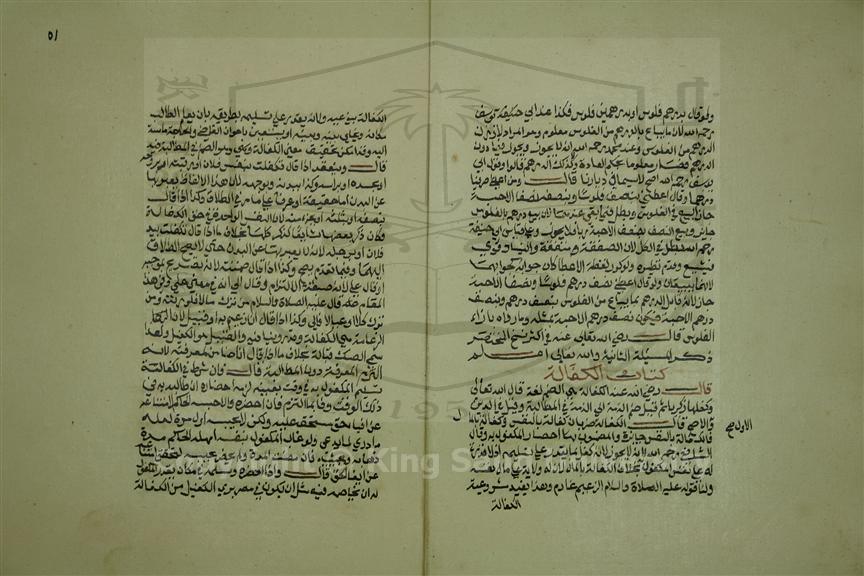 ولو قال بدرهم فلوس او بدرهمين فلوس فكذا عند ابي يوسف
رحمه الله لان ما يباع بالدرهم من الفلوس معلوم وهو المراد لا وزن
الدرهم من الفلوس وعند محمد رحمه الله انه لا يجوز ويجوز فيما دون
الدرهم فصار معلوما بحكم العادة ولا كذلك الدرهم قالوا وقول ابي
يوسف رحمه الله اصح لا سيما في ديارنا قال ومن اعطى صيرفيا
درهما وقال اعطني بنصفه فلوسا وبنصفه نصفا الا حبة
جاز البيع في الفلوس وبطل فيما بقي عندهما لان بيع نصف درهم بالفلوس
جائز وبيع النصف بنصف الا حبة ربا فلا يجوز وعلى قياس قول ابي حنيفة
رحمه الله بطل في الكل لان الصفقة متحدة والفساد قوي
فيشيع وقد مر نظيره ولو كرر لفظة الاعطاء كان جوابه كجوابهما
لانهما بيعان ولو قال اعطني نصف درهم فلوسا ونصفا الا حبة
جاز لانه قابل الدرهم بما يباع من الفلوس بنصف درهم وبنصف
درهم الا حبة فيكون نصف درهم الا حبة بمثله وما وراءه بازاء
الفلوس قال رضي الله عنه في اكثر نسخ المختصر
ذكر المسئلة الثانية والله تعالى اعلم
كتاب الكفالة
قال رضي الله عنه الكفالة هي الضم لغة قال الله تعالى
وكفلها زكريا ثم قيل ضم الذمة الى الذمة في المطالبة وقيل في الدين
والاول اصح قال الكفالة ضربان كفالة بالنفس وكفالة بالمال
فالكفالة بالنفس جائزة والمضمون بها احضار المكفول به وقال
الشافعي رحمه الله لا يجوز لانه كفل بما لا يقدر على تسليمه اذ لا قدرة
له على نفس المكفول به بخلاف الكفالة بالمال لان له ولاية على مال نفسه
ولنا قوله عليه الصلاة والسلام الزعيم غارم وهذا يفيد مشروعية
الكفالة
٥١
الكفالة بنوعيه ولانه يقدر على تسليمه بطريقه بان يعلم الطالب
مكانه ويخلي بينه وبينه او يستعين باعوان القاضي والحاجة ماسة
اليه وقد امكن تحقيق معنى الكفالة وهو الضم في المطالبة فيه
قال وينعقد اذا قال تكفلت بنفس فلان او برقبته او بروحه
او بجسده او براسه وكذا ببدنه وبوجهه لان هذه الالفاظ يعبر بها
عن البدن اما حقيقة او عرفا على ما مر في الطلاق وكذا اذا قال
بنصفه او بثلثه او بجزء منه لان النفس الواحدة في حق الكفالة
فكان ذكر بعضها شايعا كذكر كلها بخلاف ما اذا قال تكفلت بيد
فلان او برجله لانه لا يعبر بهما عن البدن حتى لا يصح اضافة الطلاق
اليهما وفيما تقدم يصح وكذا اذا قال ضمنته لانه تصريح بموجبه
او قال علي لانه صيغة الالتزام او قال الي لانه في معنى علي في هذا
المقام قال عليه الصلاة والسلام من ترك مالا فلورثته ومن
ترك كلا او عيالا فالي وكذا اذا قال انا زعيم به او قبيل لان
الزعامة هي الكفالة وقد روينا فيه والقبيل هو الكفيل ولهذا
سمي الصك قبالة بخلاف ما اذا قال انا ضامن لمعرفته لانه
التزم المعرفة دون المطالبة قال فان شرط في الكفالة
تسليم المكفول به في وقت بعينه لزمه احضاره ان طالبه به في
ذلك الوقت وفاء بما التزم فان احضره والا حبسه الحاكم لامتناعه
عن ايفاء حق مستحق عليه ولكن لا يحبسه اول مرة لعله
ما درى لماذا يدعى ولو غاب المكفول بنفسه امهله الحاكم مدة
ذهابه ومجيئه فان مضت المدة ولم يحضره يحبسه لتحقق امتناعه
عن ايفاء الحق قال واذا احضره وسلمه في مكان يقدر المكفول
له ان يخاصمه فيه مثل ان يكون في مصر برئ الكفيل من الكفالة